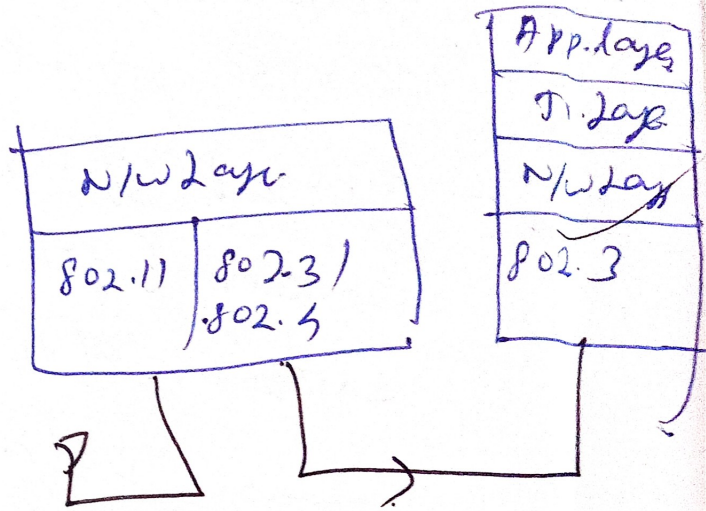 N/W Laye.
802.11
802.3/
.802.5
App. layer
Tr. Laye
N/W Lay
802.3